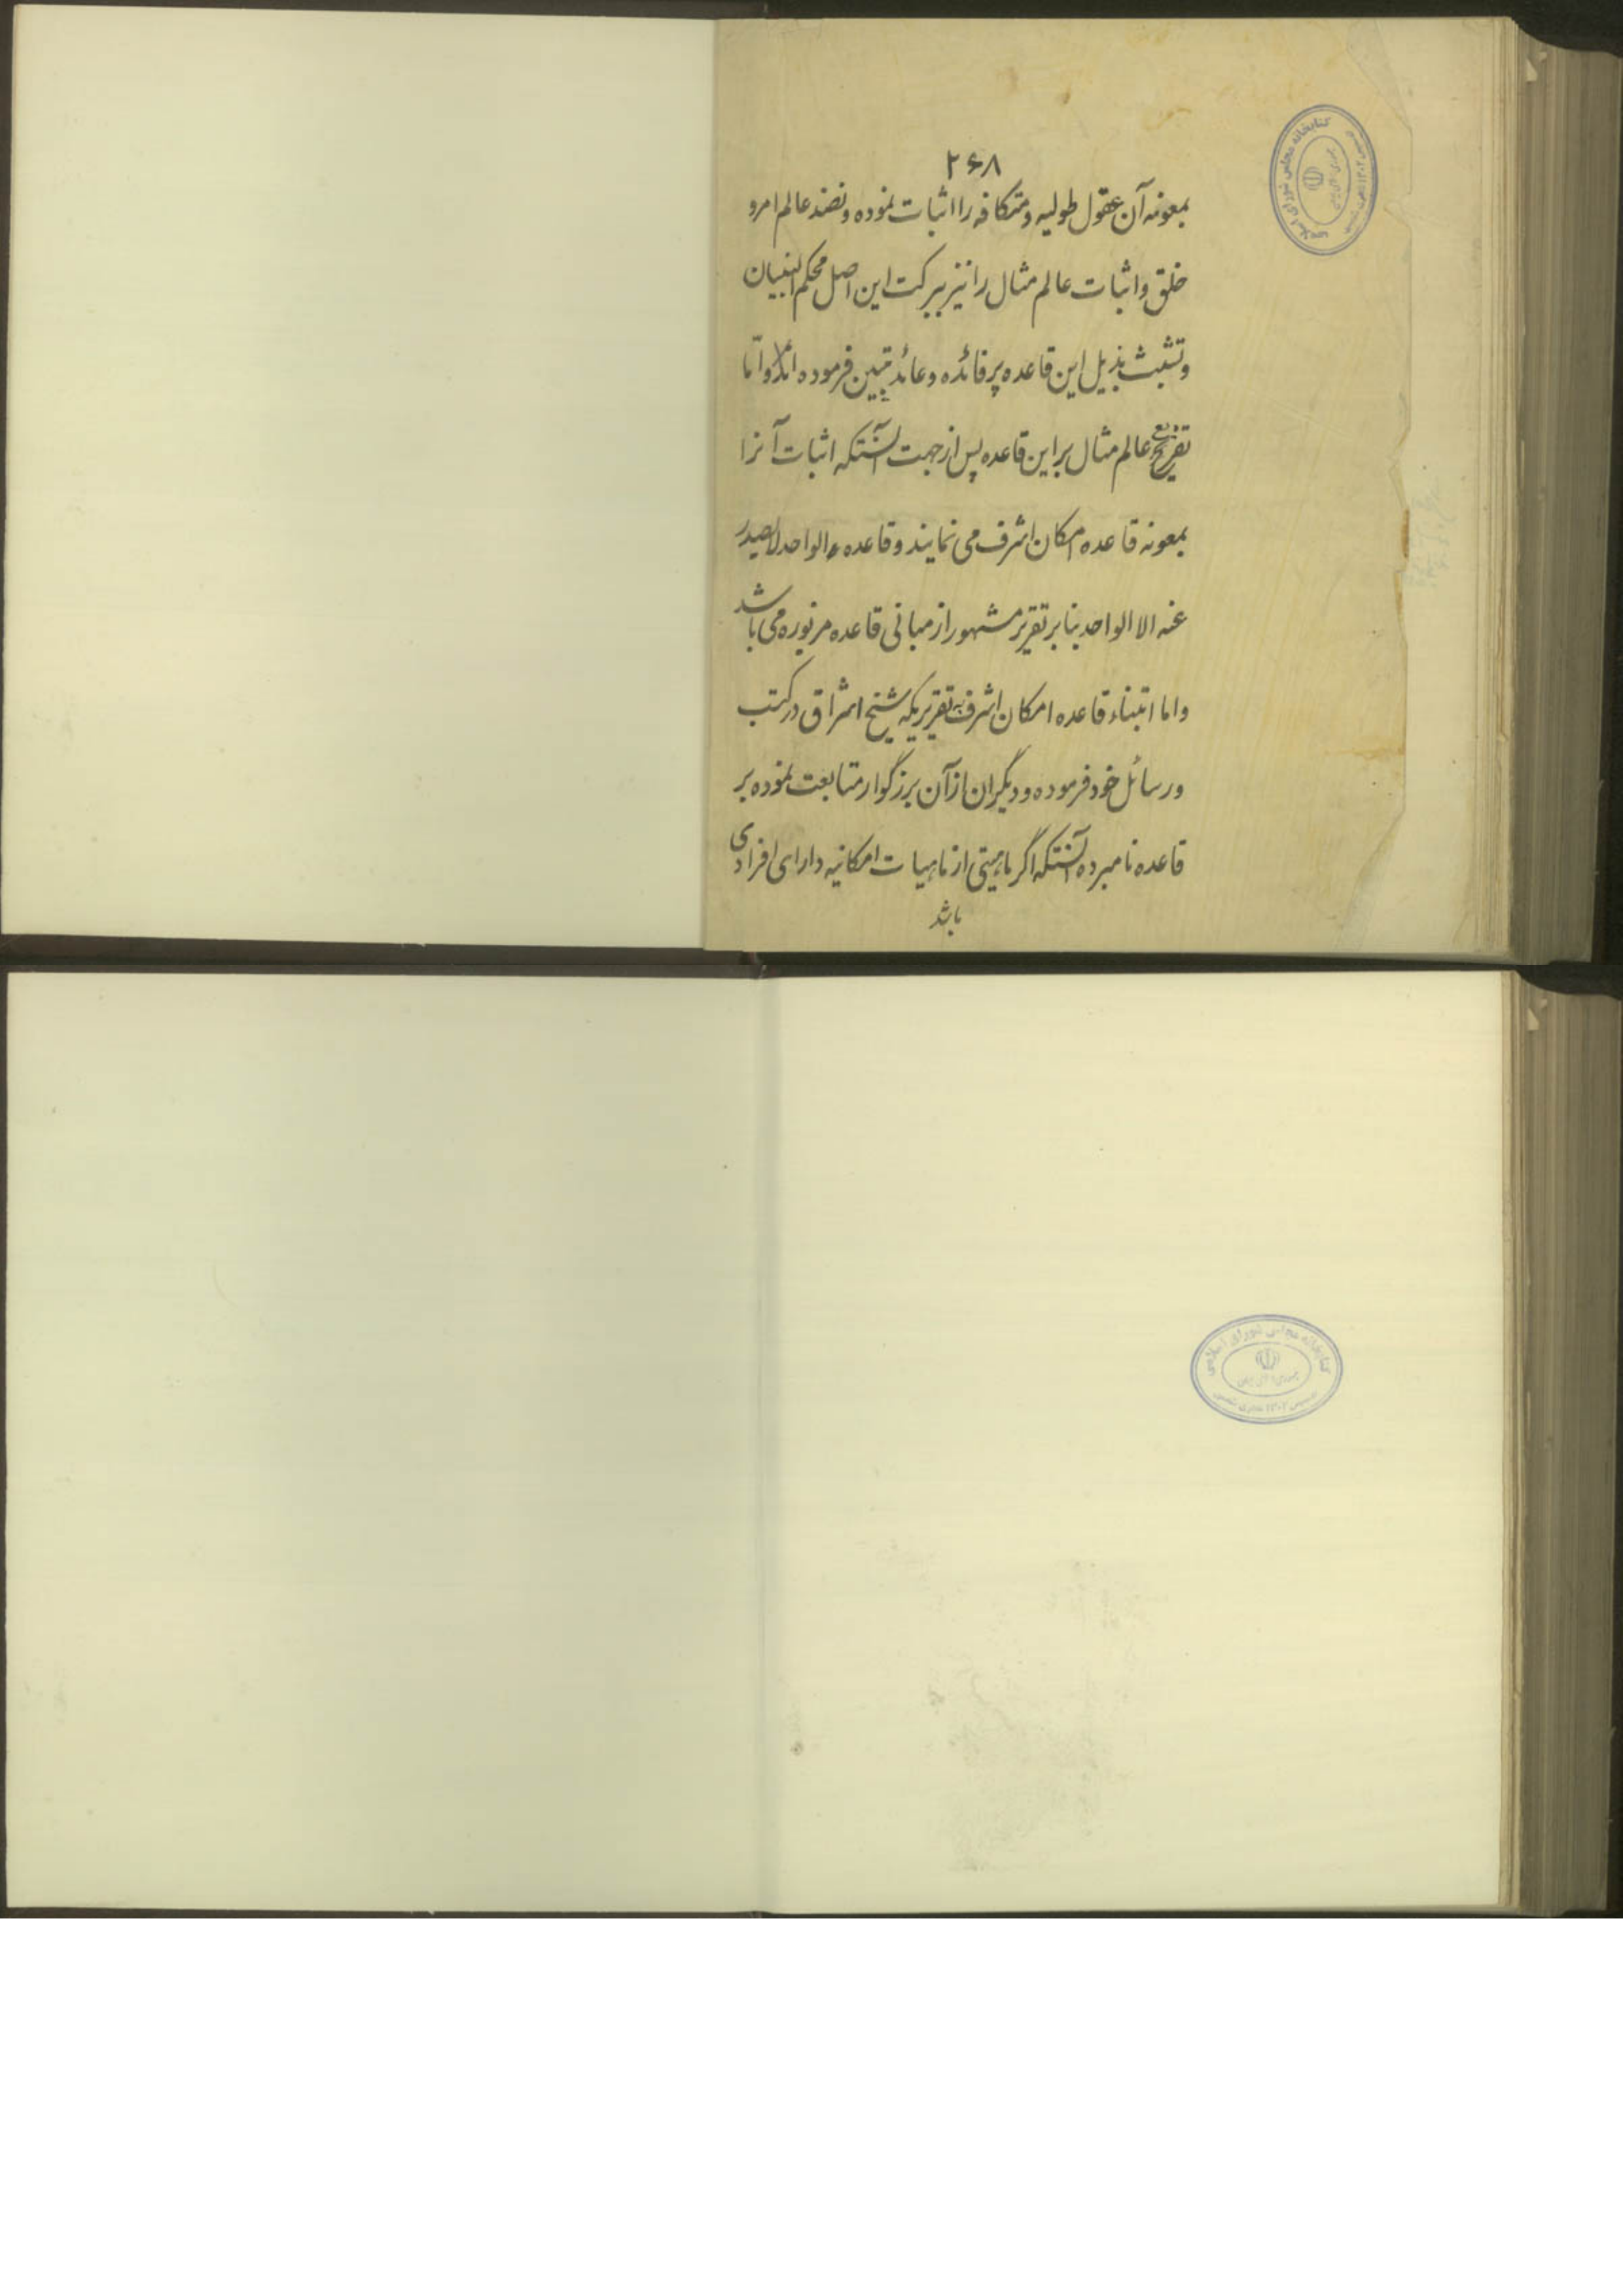 ۲۶۸
بمعونه آن عقول طولیه و متکافه را اثبات نموده و نضد عالم امرو
خلق و اثبات عالم مثال را نیز ببرکت این اصل محکم البنیان
و تشبث بذیل این قاعده پر فائده و عائد تبیین فرموده اند و امّا
تفریع عالم مثال بر این قاعده پس از جهت آنستکه اثبات آنرا
بمعونه قاعده امکان اشرف می نمایند و قاعده الواحد لا یصدر
عنه الا الواحد بنا بر تقریر مشهور از مبانی قاعده مزبوره می باشد
و اما ابتناء قاعده امکان اشرف به تقریریکه شیخ اشراق در کتب
و رسائل خود فرموده و دیگران از آن بزرگوار متابعت نموده بر
قاعده نامبرده آنستکه اگر ماهیتی از ماهیات امکانیه دارای افرادی
باشد
کتابخانه مجلس شورای اسلامی
کتابخانه مجلس شورای اسلامی